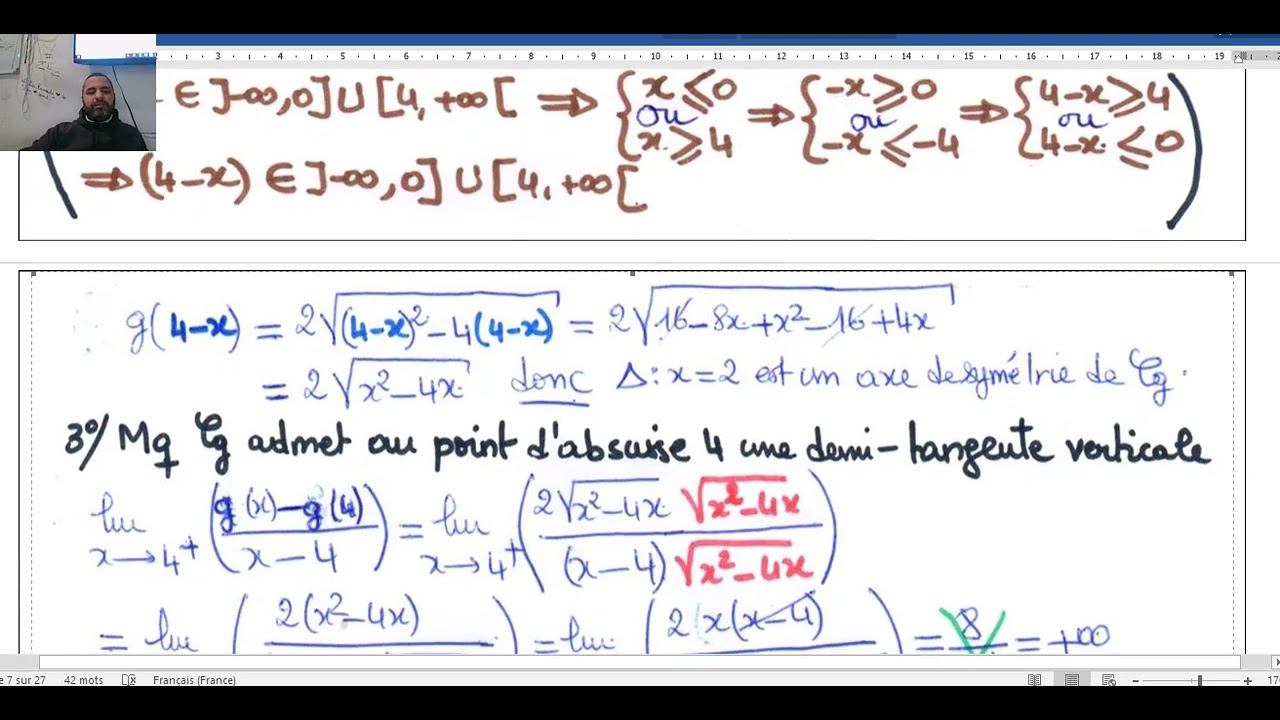 3 4 5 6 7 8 9 10 11 12 13 14 15 16 17 18 19
∈ ]-∞, 0] ∪ [4, +∞[ ⟹ { x ≤ 0 ou x ≥ 4 ⟹ { -x ≥ 0 ou -x ≤ -4 ⟹ { 4-x ≥ 4 ou 4-x ≤ 0 )
⟹ (4-x) ∈ ]-∞, 0] ∪ [4, +∞[
g(4-x) = 2√((4-x)² - 4(4-x)) = 2√(16 - 8x + x² - 16 + 4x)
= 2√(x² - 4x) donc Δ: x = 2 est un axe de symétrie de Cg.
3°/ Mq Cg admet au point d'abscisse 4 une demi-tangente verticale
lim x→4⁺ ((g(x) - g(4))/(x - 4)) = lim x→4⁺ ((2√(x² - 4x) √(x² - 4x))/((x - 4) √(x² - 4x)))
= lim ( 2(x² - 4x) ) = lim ( 2(x(x - 4)) ) = 8 = +∞
7 sur 27 42 mots Français (France)